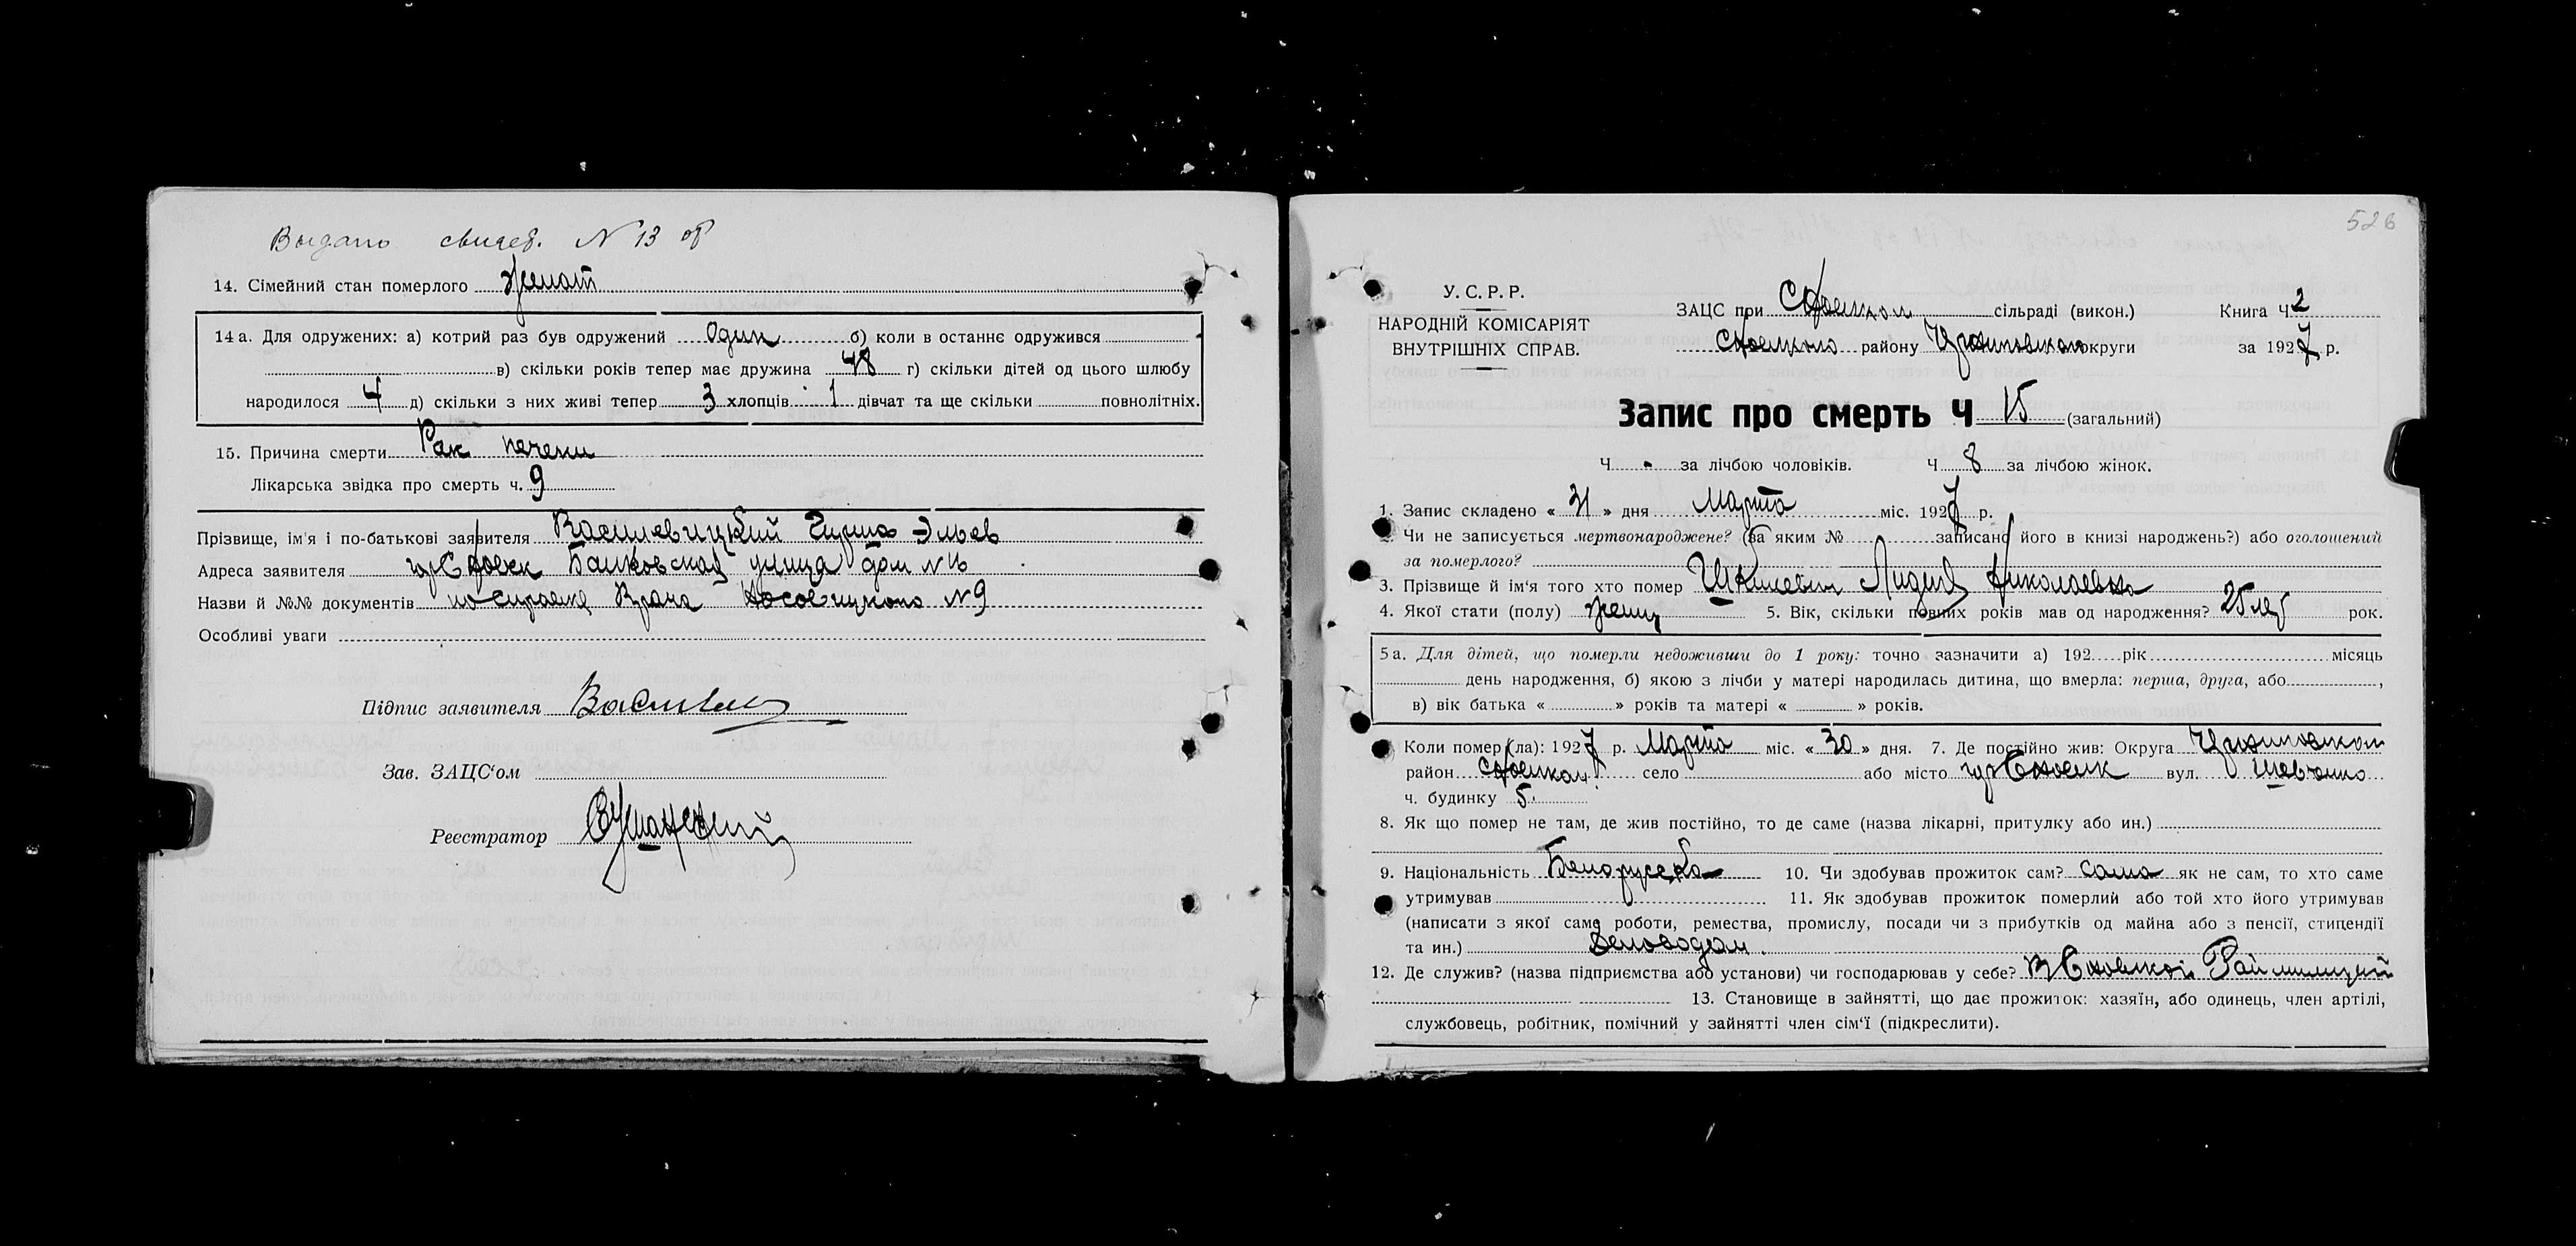 Выдано свидет. N 13 об
14. Сімейний стан померлого Женат
14а. Для одружених: а) котрий раз був одружений Один б) коли в останнє одружився
в) скільки років тепер має дружина 48 г) скільки дітей од цього шлюбу
народилося 4 д) скільки з них живі тепер 3 хлопців 1 дівчат та ще скільки повнолітніх.
15. Причина смерти Рак печени
Лікарська звідка про смерть ч. 9
Прізвище, ім'я і по-батькові заявителя Василевицкий Гирша Эльев
Адреса заявителя гор Сновск Банковская улица дом N 16
Назви й №№ документів по справке Врача Носовицкого N9
Особливі уваги
Підпис заявителя Василеви
Зав. ЗАЦС'ом
Реєстратор
526
У. С. Р. Р.
НАРОДНІЙ КОМІСАРІЯТ
ВНУТРІШНІХ СПРАВ.
ЗАЦС при Сновском сільраді (викон.) Книга Ч 2
Сновского району округи за 1927 р.
Запис про смерть Ч 15 (загальний)
Ч - за лічбою чоловіків. Ч 8 за лічбою жінок.
1. Запис складено « 31 » дня Марта міс. 1927 р.
2. Чи не записується мертвонароджене? (за яким № записано його в книзі народжень?) або оголошений
за померлого?
3. Прізвище й ім'я того хто помер Лидия Николаевна
4. Якої стати (полу) женщ 5. Вік, скільки повних років мав од народження? 25 лет рок.
5а. Для дітей, що померли недоживши до 1 року: точно зазначити а) 192 рік місяць
день народження, б) якою з лічби у матері народилась дитина, що вмерла: перша, друга, або ,
в) вік батька « » років та матері « » років.
Коли помер (ла): 1927 р. Марта міс. « 30 » дня. 7. Де постійно жив: Округа
район Сновский село або місто гор Сновск вул. Шевченко
ч. будинку 5.
8. Як що помер не там, де жив постійно, то де саме (назва лікарні, притулку або ин.)
9. Національність Белорусска 10. Чи здобував прожиток сам? сама як не сам, то хто саме
утримував 11. Як здобував прожиток померлий або той хто його утримував
(написати з якої саме роботи, ремества, промислу, посади чи з прибутків од майна або з пенсії, стипендії
та ин.) Деловодом
12. Де служив? (назва підприємства або установи) чи господарював у себе? В Сновской Раймилиции
13. Становище в зайнятті, що дає прожиток: хазяїн, або одинець, член артілі,
службовець, робітник, помічний у зайнятті член сім'ї (підкреслити).